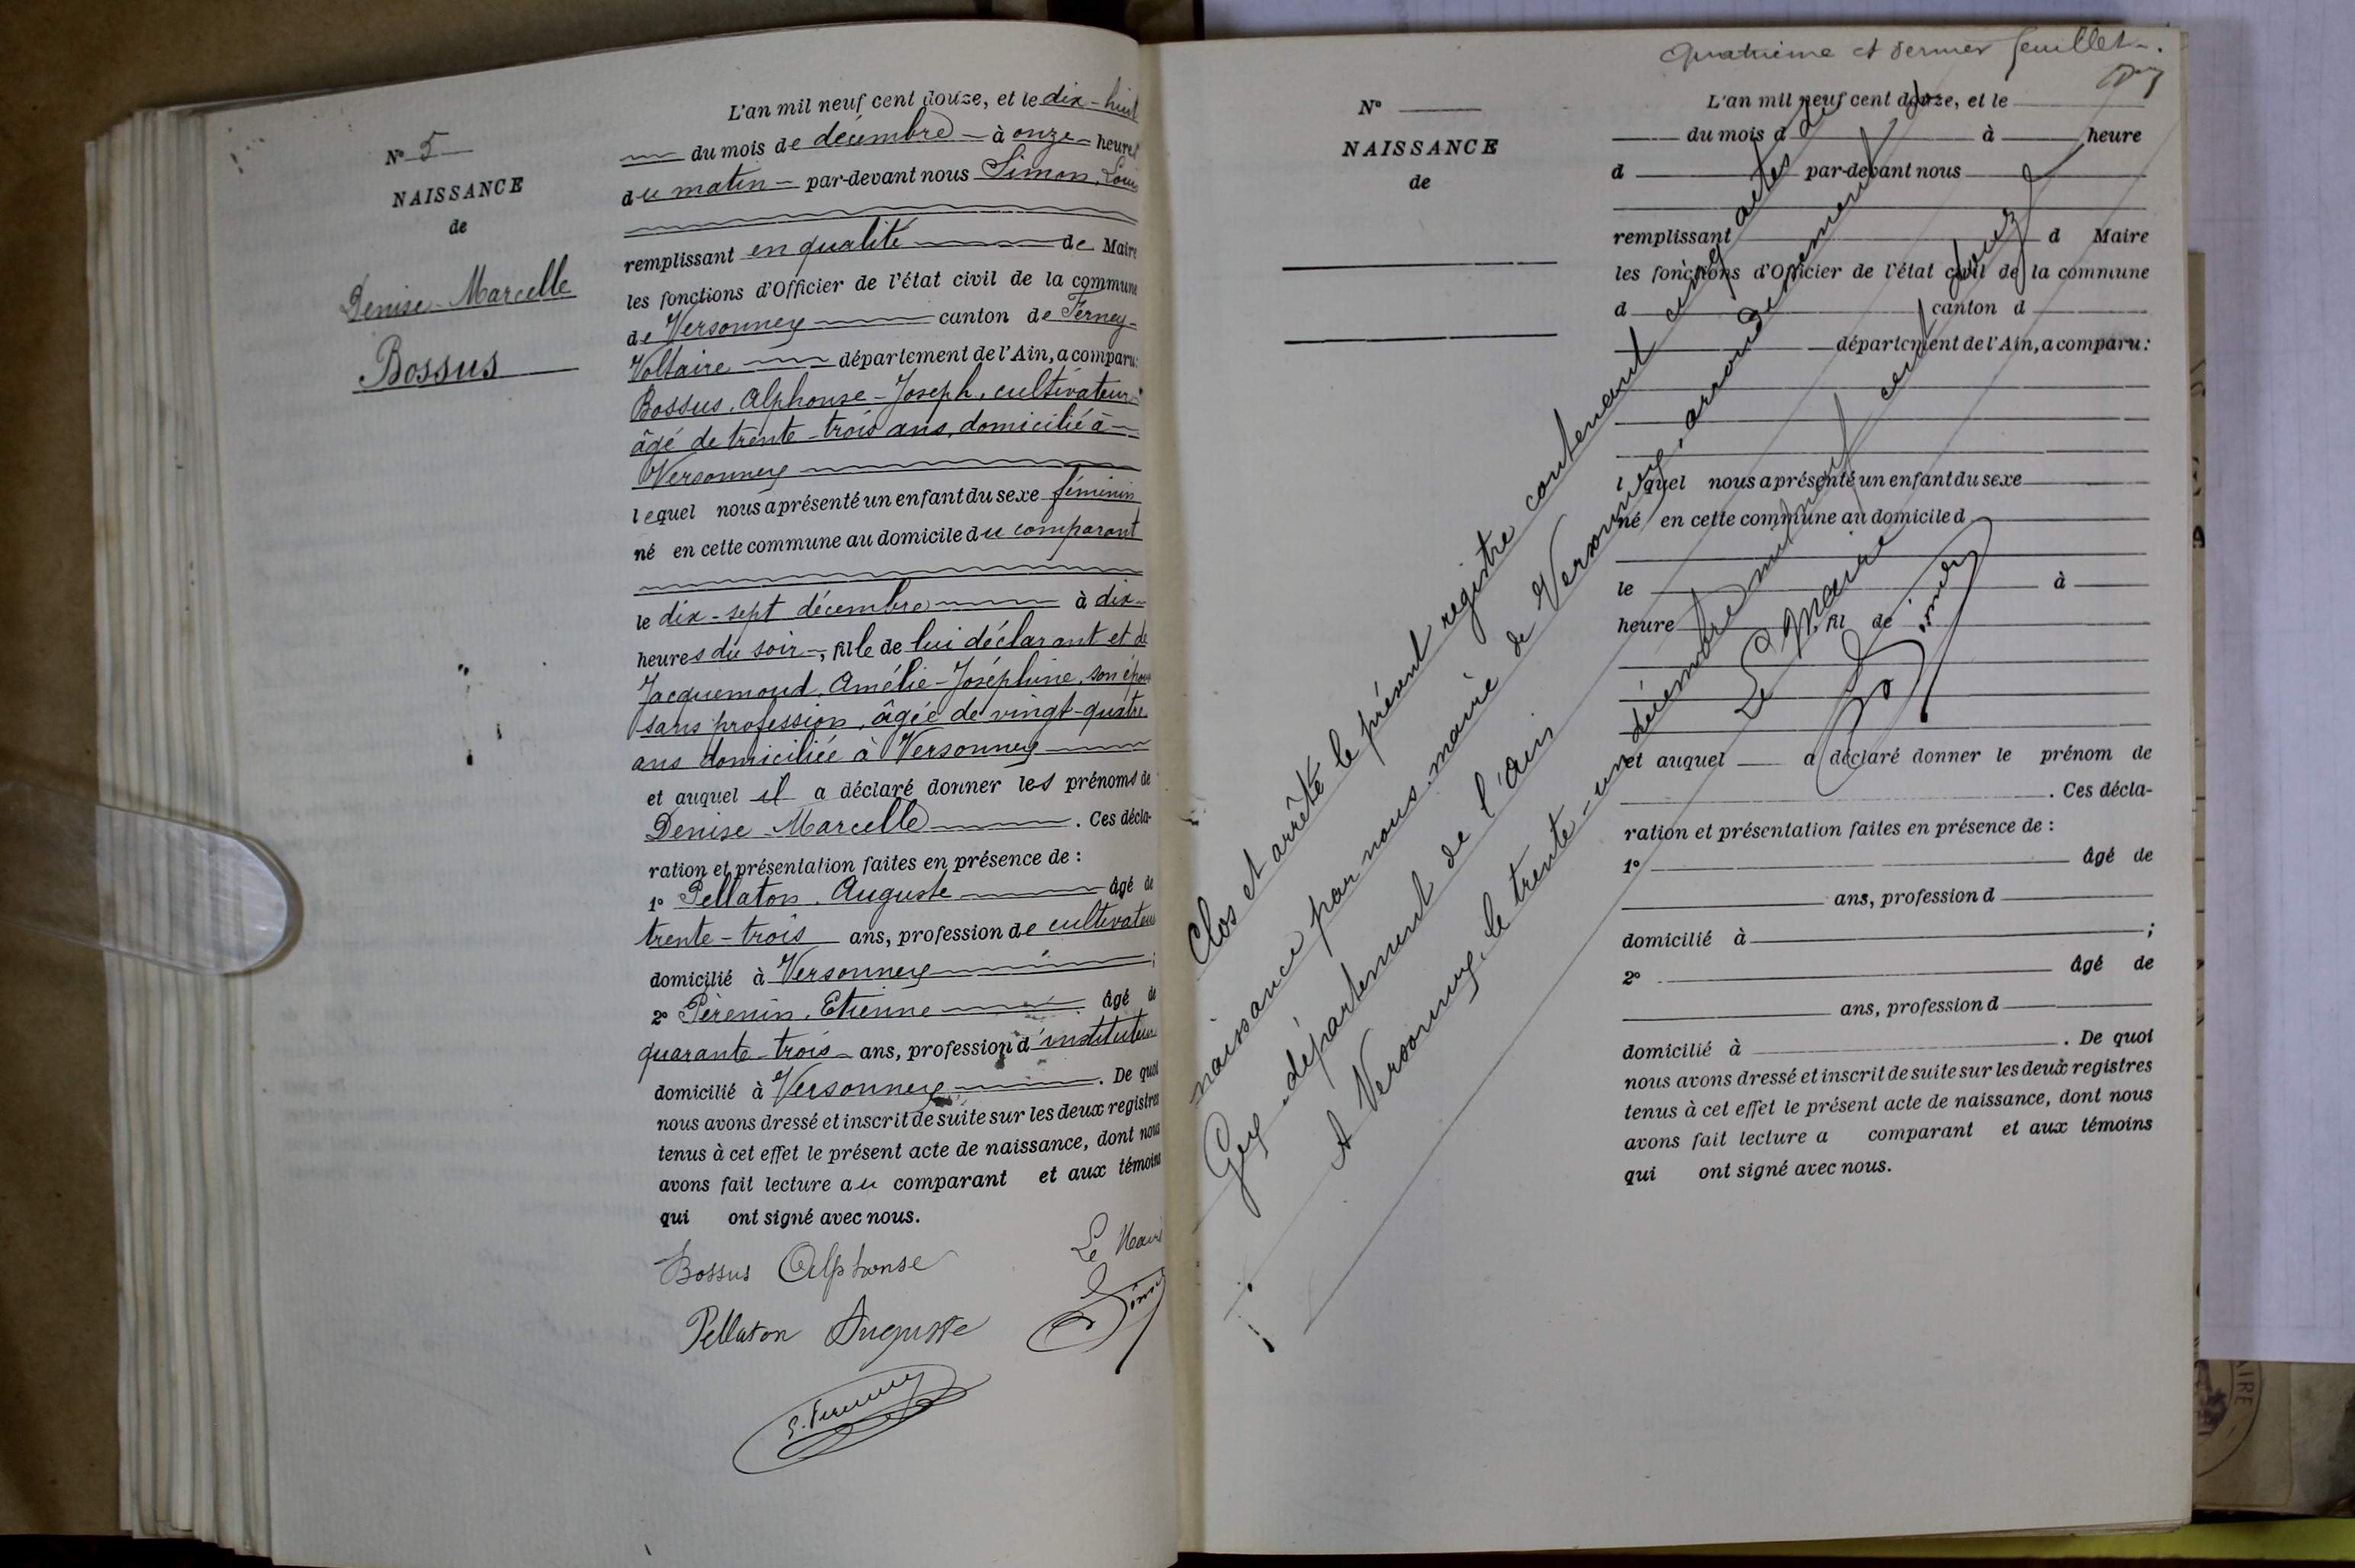 N° 5
NAISSANCE
de
Denise-Marcelle
Bossus
L'an mil neuf cent douze, et le dix-huit
du mois de décembre à onze heures
du matin par-devant nous Simon, Louis
remplissant en qualité de Maire
les fonctions d'Officier de l'état civil de la commune
de Versonnex canton de Ferney-
Voltaire département de l'Ain, a comparu:
Bossus, Alphonse-Joseph, cultivateur
âgé de trente-trois ans, domicilié à
Versonnex
lequel nous a présenté un enfant du sexe féminin
né en cette commune au domicile du comparant
le dix-sept décembre à dix
heures du soir, fille de lui déclarant et de
Jacquemoud, Amélie-Joséphine, son épouse
sans profession, âgée de vingt-quatre
ans domiciliée à Versonnex
et auquel il a déclaré donner les prénoms de
Denise-Marcelle. Ces décla-
ration et présentation faites en présence de :
1° Pellaton, Auguste âgé de
trente-trois ans, profession de cultivateur
domicilié à Versonnex ;
2° Perenin, Etienne âgé de
quarante-trois ans, profession d'instituteur
domicilié à Versonnex. De quoi
nous avons dressé et inscrit de suite sur les deux registres
tenus à cet effet le présent acte de naissance, dont nous
avons fait lecture au comparant et aux témoins
qui ont signé avec nous.
Bossus Alphonse
Le Maire
Pellaton Auguste
Simon
Quatrième et dernier feuillet.
N°
NAISSANCE
de
L'an mil neuf cent douze, et le
du mois d à heure
d par-devant nous
remplissant d Maire
les fonctions d'Officier de l'état civil de la commune
d canton d
département de l'Ain, a comparu :
l quel nous a présenté un enfant du sexe
né en cette commune au domicile d
le à
heure , fil de
et auquel a déclaré donner le prénom de
. Ces décla-
ration et présentation faites en présence de :
1° âgé de
ans, profession d
domicilié à ;
2° âgé de
ans, profession d
domicilié à . De quoi
nous avons dressé et inscrit de suite sur les deux registres
tenus à cet effet le présent acte de naissance, dont nous
avons fait lecture a comparant et aux témoins
qui ont signé avec nous.
Clos et arrêté le présent registre contenant cinq actes de
naissance par nous, maire de Versonnex, arrondissement de
Gex, département de l'Ain
A Versonnex, le trente-un décembre mil neuf cent douze
Le Maire
Simon